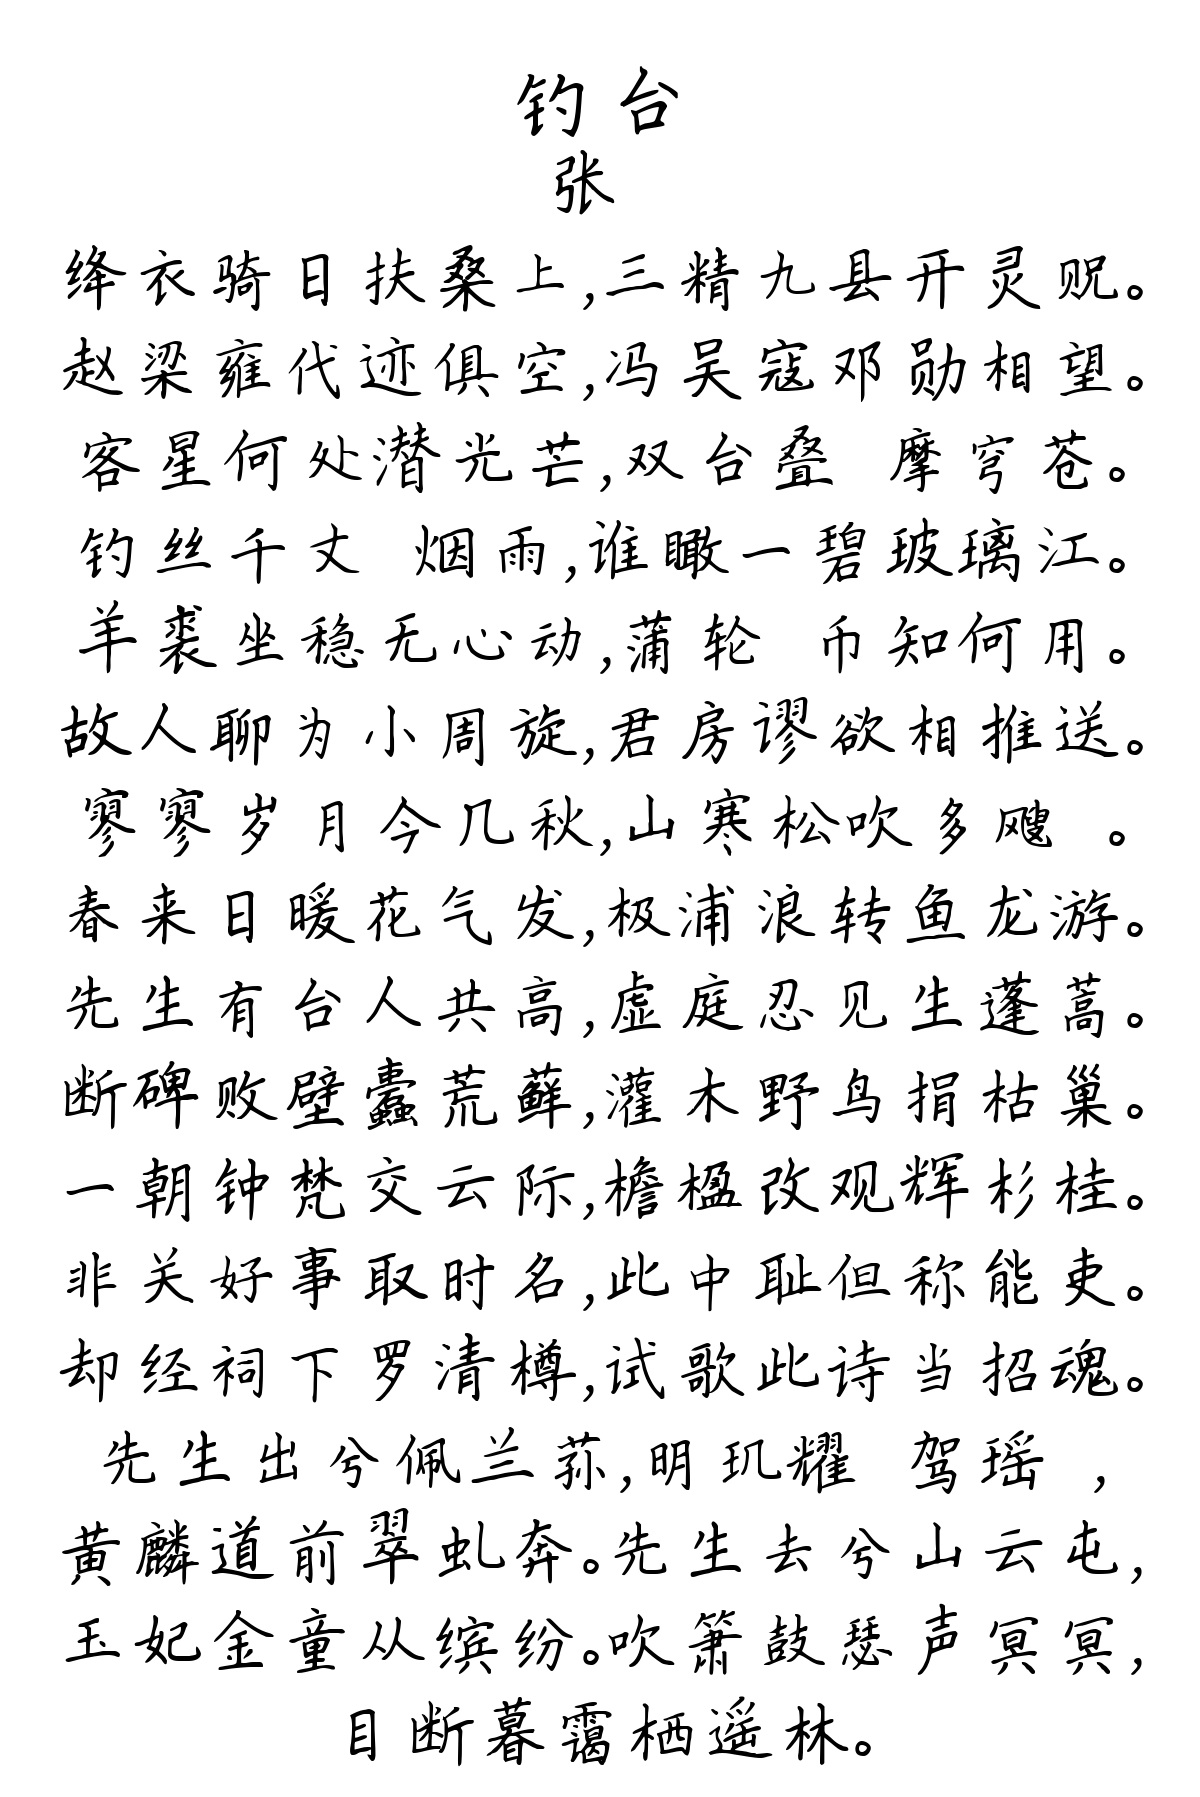 钓台
张
绛衣骑日扶桑上,三精九县开灵贶。
赵梁雍代迹俱空,冯吴寇邓勋相望。
客星何处潜光芒,双台叠 摩穹苍。
钓丝千丈 烟雨,谁瞰一碧玻璃江。
羊裘坐稳无心动,蒲轮 币知何用。
故人聊为小周旋,君房谬欲相推送。
寥寥岁月今几秋,山寒松吹多飕 。
春来日暖花气发,极浦浪转鱼龙游。
先生有台人共高,虚庭忍见生蓬蒿。
断碑败壁蠹荒藓,灌木野鸟捐枯巢。
一朝钟梵交云际,檐楹改观辉杉桂。
非关好事取时名,此中耻但称能吏。
却经祠下罗清樽,试歌此诗当招魂。
先生出兮佩兰荪,明玑耀 驾瑶 ,
黄麟道前翠虬奔。先生去兮山云屯,
玉妃金童从缤纷。吹箫鼓瑟声冥冥,
目断暮霭栖遥林。